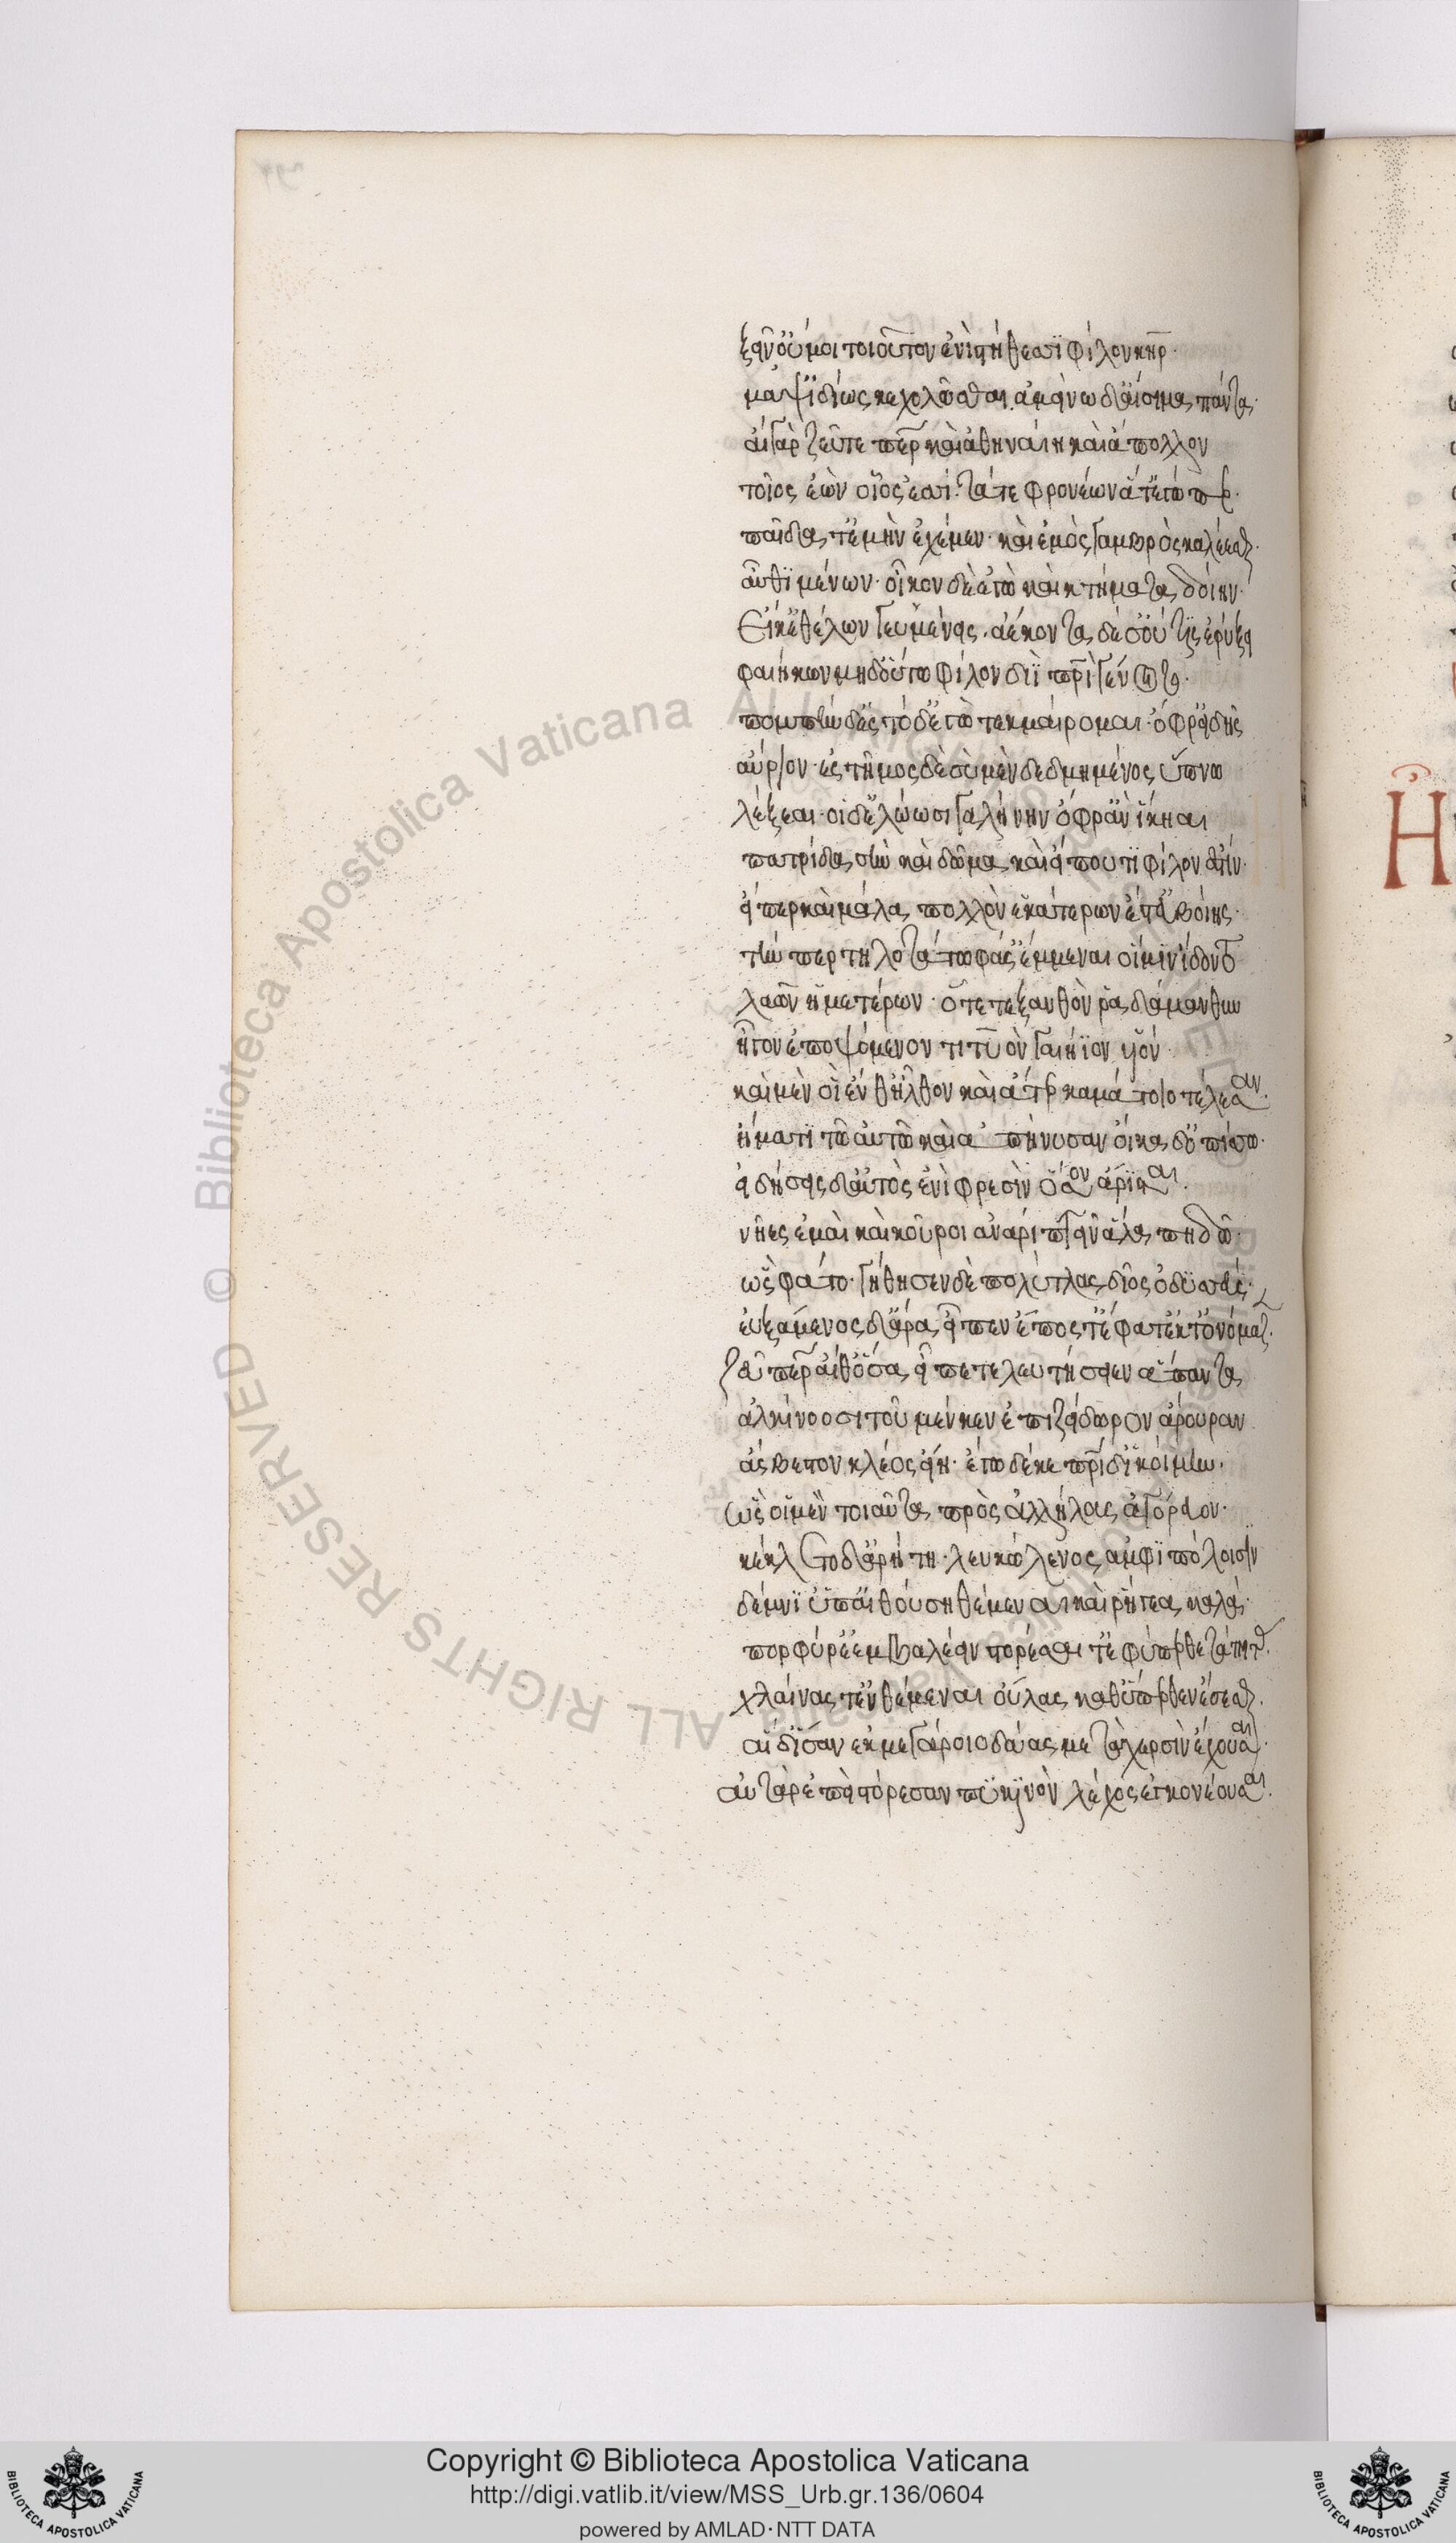 ξεῖν οὔ μοι τοιοῦτον ἐνὶ στήθεσσι φίλον κῆρ.
μαψιδίως κεχολῶσθαι. ἀμείνω δ' αἴσιμα πάντα.
αἲ γὰρ ζεῦτε πάτερ καὶ ἀθηναίη καὶ ἄπολλον
τοῖος ἐὼν οἷος ἐσσί. τά τε φρονέων ἅ τ' ἐγώ περ.
παῖδά τ' ἐμὴν ἐχέμεν. καὶ ἐμὸς γαμβρὸς καλέεσθαι.
αὖθι μένων. οἶκον δέ τ' ἐγὼ καὶ κτήματα δοίην.
Εἴ κ' ἐθέλων γε μένοις. ἀέκοντα δέ σ' οὔ τις ἐρύξει
φαιήκων μηδ' οὕτω φίλον διῒ πατρὶ γένοιτο.
πομπὴν δ' ἐς τόδ' ἐγὼ τεκμαίρομαι. ὄφρ' εἰδῇς
αὔριον. ἐς τῆμος δὲ σὺ μὲν δεδμημένος ὕπνω
λέξεαι. οἱ δ' ἐλόωσι γαλήνην ὄφρ' ἂν ἵκηαι
πατρίδα σὴν καὶ δῶμα. καὶ εἴ που τι φίλον ἐστίν.
εἴπερ καὶ μάλα πολλὸν ἑκαστέρω ἔστ' εὐβοίης.
τήν περ τηλοτάτω φάσ' ἔμμεναι οἵ μιν ἴδοντο
λαῶν ἡμετέρων. ὅτε τε ξανθὸν ῥαδάμανθυν
ἦγον ἐποψόμενον τιτυὸν γαιήϊον υἱόν.
καὶ μὲν οἱ ἔνθ' ἦλθον καὶ ἄτερ καμάτοιο τέλεσσαν.
ἤματι τῶ αὐτῶ καὶ ἀπήνυσαν οἴκαδ' ὀπίσσω.
εἰδήσεις δ' αὐτὸς ἐνὶ φρεσὶν ὅσσον ἄρισται.
νῆες ἐμαὶ καὶ κοῦροι ἀναρίπτειν ἅλα πηδῶ.
ὣς φάτο. γήθησεν δὲ πολύτλας δῖος ὀδυσσεύς.
εὐξάμενος δ' ἄρα εἶπεν ἔπος τ' ἔφατ' ἔκ τ' ὀνόμαζεν.
Ζεῦ πάτερ αἴθ' ὅσα εἶπε τελευτήσειεν ἅπαντα
ἀλκίνοος τοῦ μέν κεν ἐπὶ ζείδωρον ἄρουραν
ἄσβεστον κλέος εἴη. ἐγὼ δέ κε πατρίδ' ἱκοίμην.
ὣς οἱ μὲν τοιαῦτα πρὸς ἀλλήλους ἀγόρευον.
κέκλετο δ' ἀρήτη λευκώλενος ἀμφιπόλοισιν
δέμνι' ὑπ' αἰθούση θέμεναι καὶ ῥήγεα καλά.
πορφύρε' ἐμβαλέειν στορέσαι τ' ἐφύπερθε τάπητας.
χλαίνας τ' ἐνθέμεναι οὔλας καθύπερθεν ἕσασθαι.
αἱ δ' ἴσαν ἐκ μεγάροιο δάος μετὰ χερσὶν ἔχουσαι.
αὐτὰρ ἐπεὶ στόρεσαν πυκινὸν λέχος ἐγκονέουσαι.
Copyright © Biblioteca Apostolica Vaticana
http://digi.vatlib.it/view/MSS_Urb.gr.136/0604
powered by AMLAD·NTT DATA